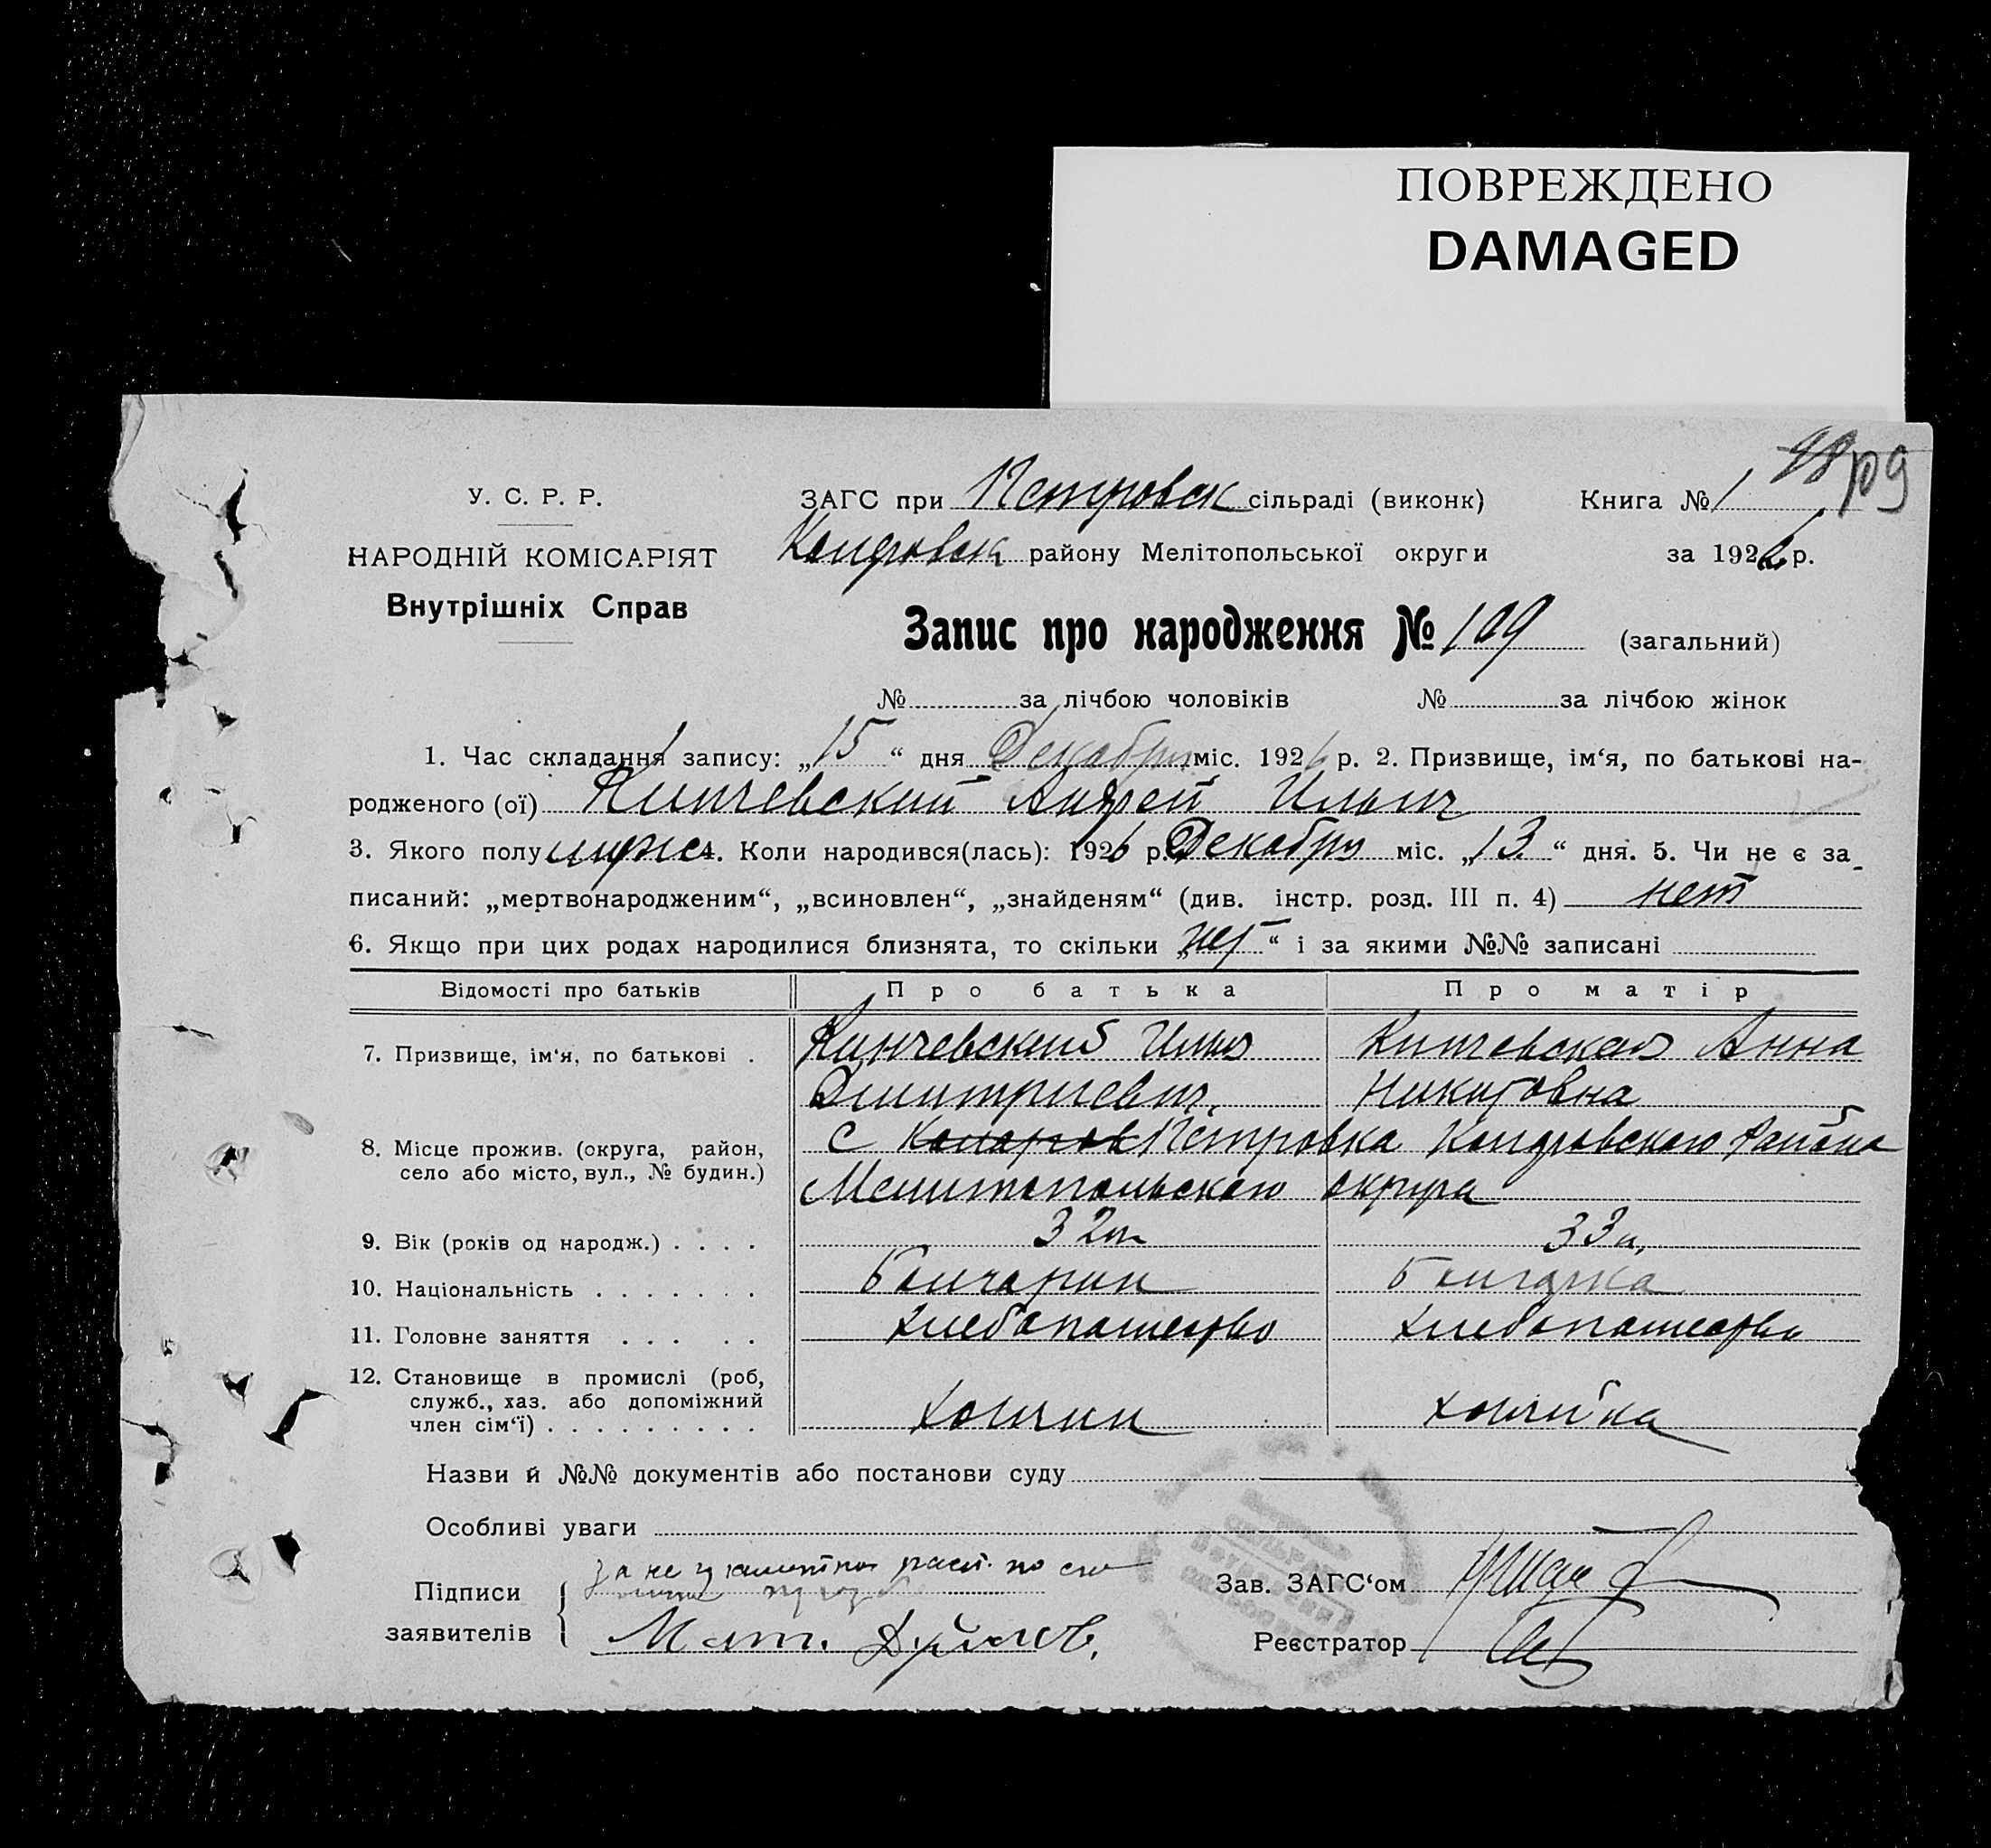 ПОВРЕЖДЕНО
DAMAGED
109
У. С. Р. Р.
ЗАГС при Петровск сільраді (виконк) Книга № 1
НАРОДНІЙ КОМІСАРІЯТ
району Мелітопольської округи за 1926 р.
Внутрішніх Справ
Запис про народження № 109 (загальний)
№ за лічбою чоловіків № за лічбою жінок
1. Час складання запису: „15“ дня Декабря міс. 1926 р. 2. Призвище, ім‘я, по батькові на-
родженого (ої) Кинчевский Андрей Ильич
3. Якого полу мужск 4. Коли народився(лась): 1926 р. Декабря міс. „13“ дня. 5. Чи не є за-
писаний: „мертвонародженим“, „всиновлен“, „знайденям“ (див. інстр. розд. III п. 4) нет
6. Якщо при цих родах народилися близнята, то скільки „нет“ і за якими №№ записані
Відомості про батьків Про батька Про матір
7. Призвище, ім‘я, по батькові . Кинчевский Илья Кинчевская Анна
Дмитриевич. Никитовна
8. Місце прожив. (округа, район, с Петровка района
село або місто, вул., № будин.) Мелитопольского округа
9. Вік (років од народж.) . . . . 32 л 33 л.
10. Національність . . . . . . . Болгарин Болгарка
11. Головне заняття . . . . . хлебопашество хлебопашество
12. Становище в промислі (роб,
служб., хаз. або допоміжний
член сім‘ї) . . . . . . . . . хозяин хозяйка
Назви й №№ документів або постанови суду
Особливі уваги
Підписи
Зав. ЗАГС‘ом
заявителів
Реєстратор